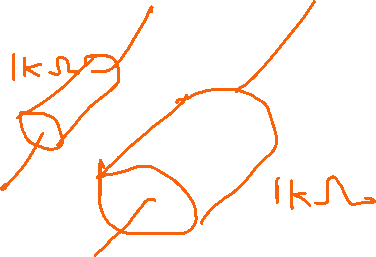 1kΩ
1kΩ